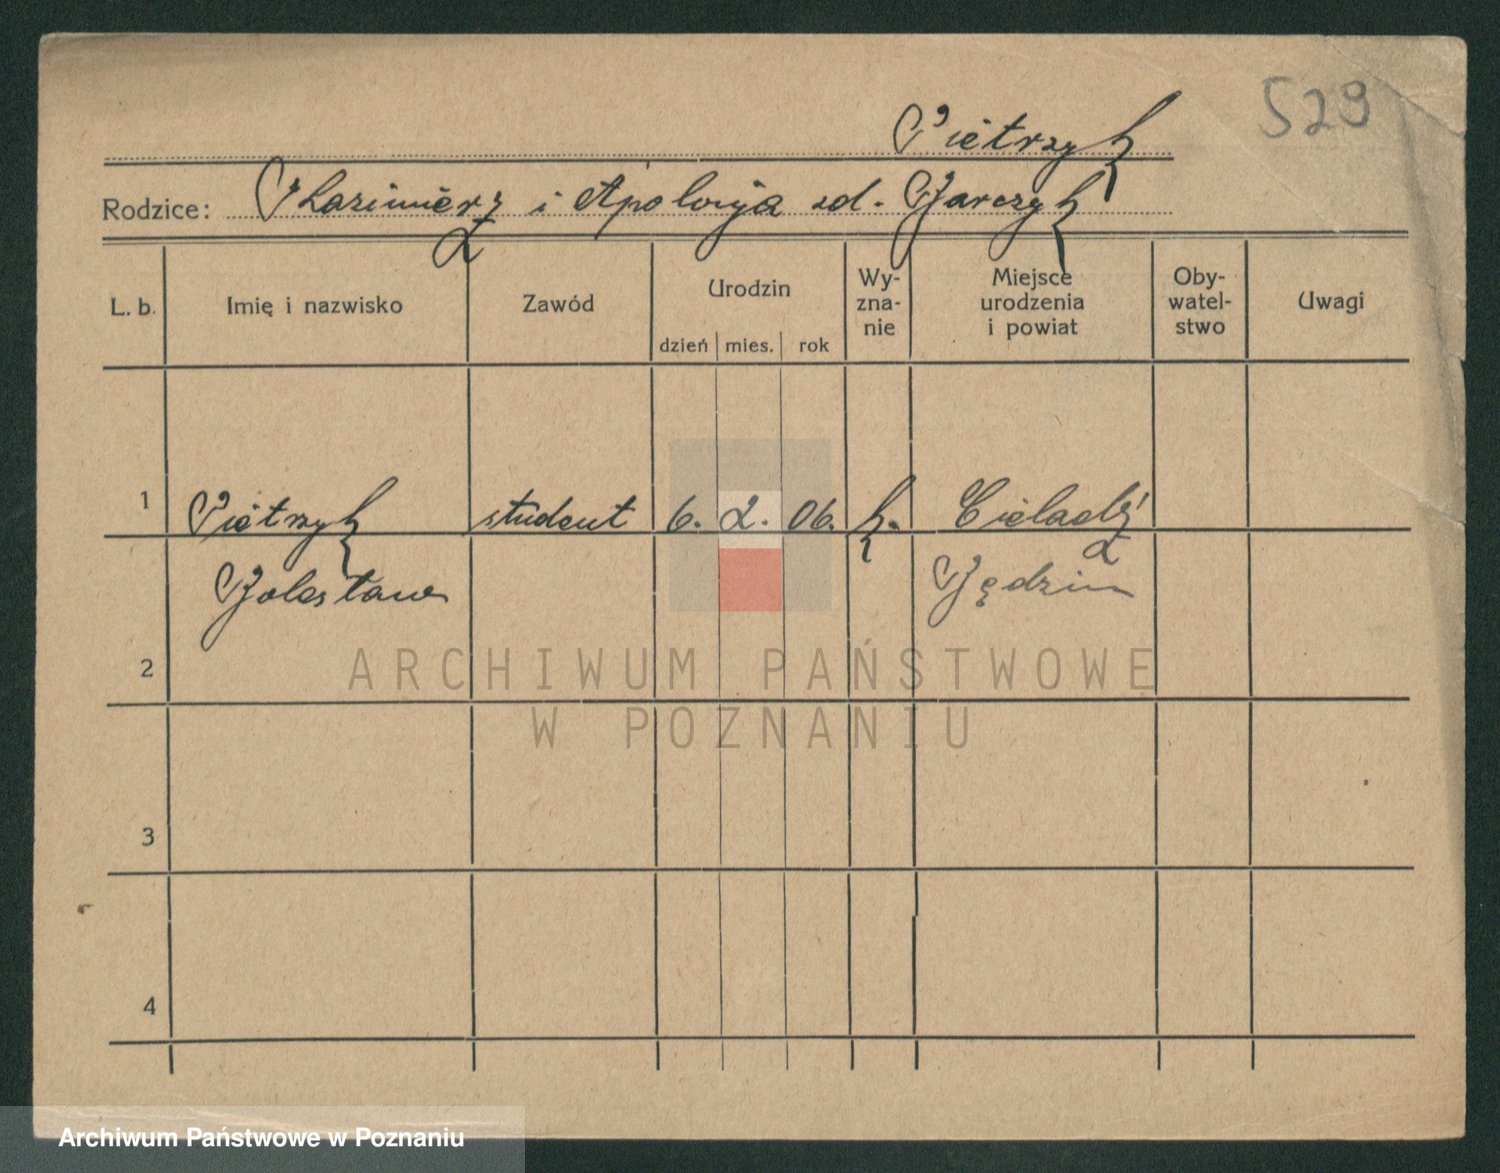 529
Pietrzyk
Rodzice: Kazimierz i Apolonja zd. Jarczyk
L. b. Imię i nazwisko Zawód Urodzin dzień mies. rok Wy-zna-nie Miejsce urodzenia i powiat Oby-watel-stwo Uwagi
1 Pietrzyk student 6. 2. 06. k.
Bolesław Będzin
2
3
4
ARCHIWUM PAŃSTWOWE
W POZNANIU
Archiwum Państwowe w Poznaniu